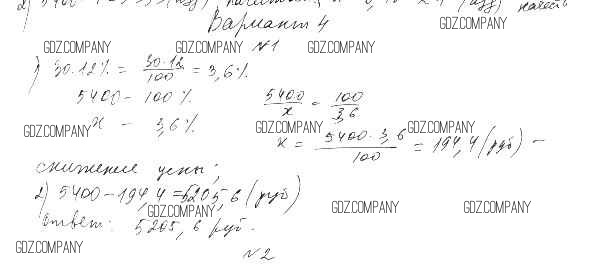 Вариант 4
GDZ.COMPANY GDZ.COMPANY №1 GDZ.COMPANY
1) 30·12% = 30·12/100 = 3,6%
5400 – 100% 5400/x = 100/3,6
GDZ.COMPANY x – 3,6% GDZ.COMPANY GDZ.COMPANY
x = 5400·3,6/100 = 194,4 (руб) –
снижение цены;
2) 5400 – 194,4 = 5205,6 (руб)
GDZ.COMPANY GDZ.COMPANY GDZ.COMPANY
Ответ: 5205,6 руб.
GDZ.COMPANY
№2